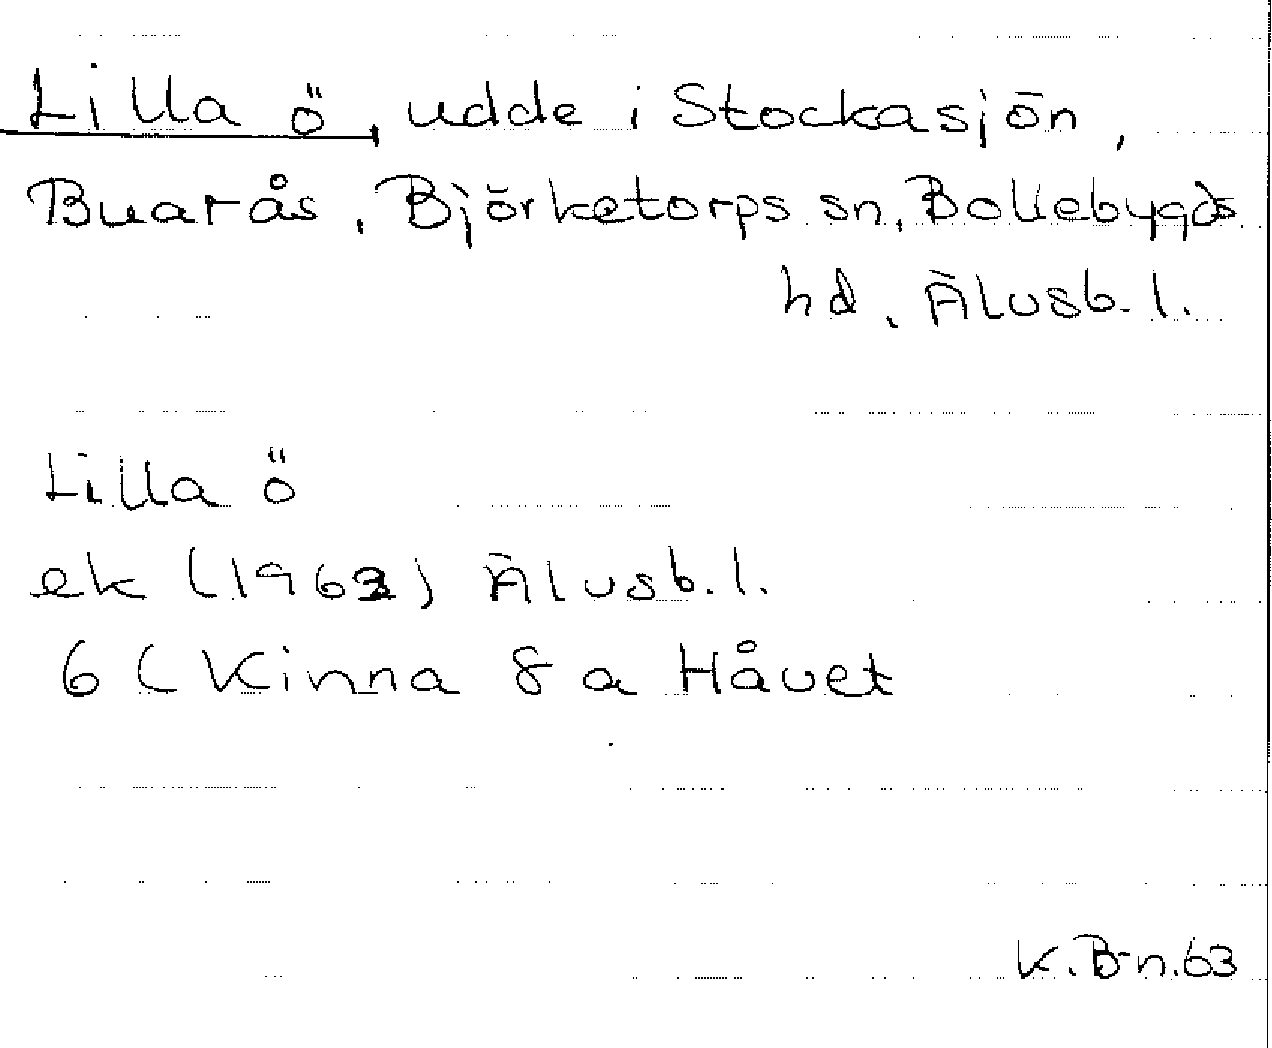 Lilla ö, udde i Stockasjön,
Buarås, Björketorps sn, Bollebygds
hd, Älvsb. l.
Lilla ö
ek (1963) Älvsb. l.
6 (Kinna 8 a Håvet
K.B-n.63